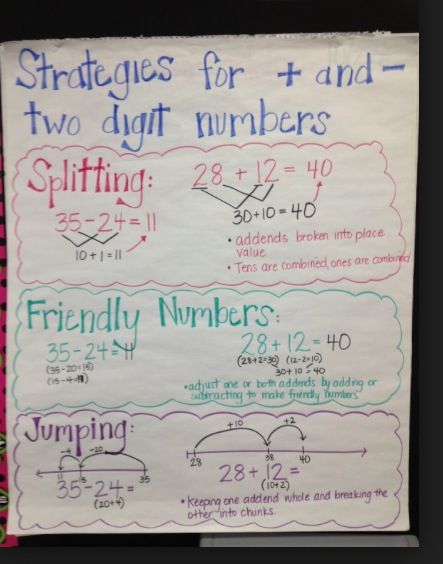 Strategies for + and -
two digit numbers
Splitting:
28 + 12 = 40
30+10=40
35-24=11
10+1=11
• addends broken into place
value
• Tens are combined, ones are combined
Friendly Numbers:
35-24=11
(35-20=15)
(15-4=11)
28+12=40
(28+2=30) (12-2=10)
30+10=40
•adjust one or both addends by adding or
subtracting to make friendly numbers"
Jumping:
-4 -20
11 15 35
35-24=
(20+4)
+10 +2
28 38 40
28+12=
(10+2)
• Keeping one addend whole and breaking the
other into chunks.